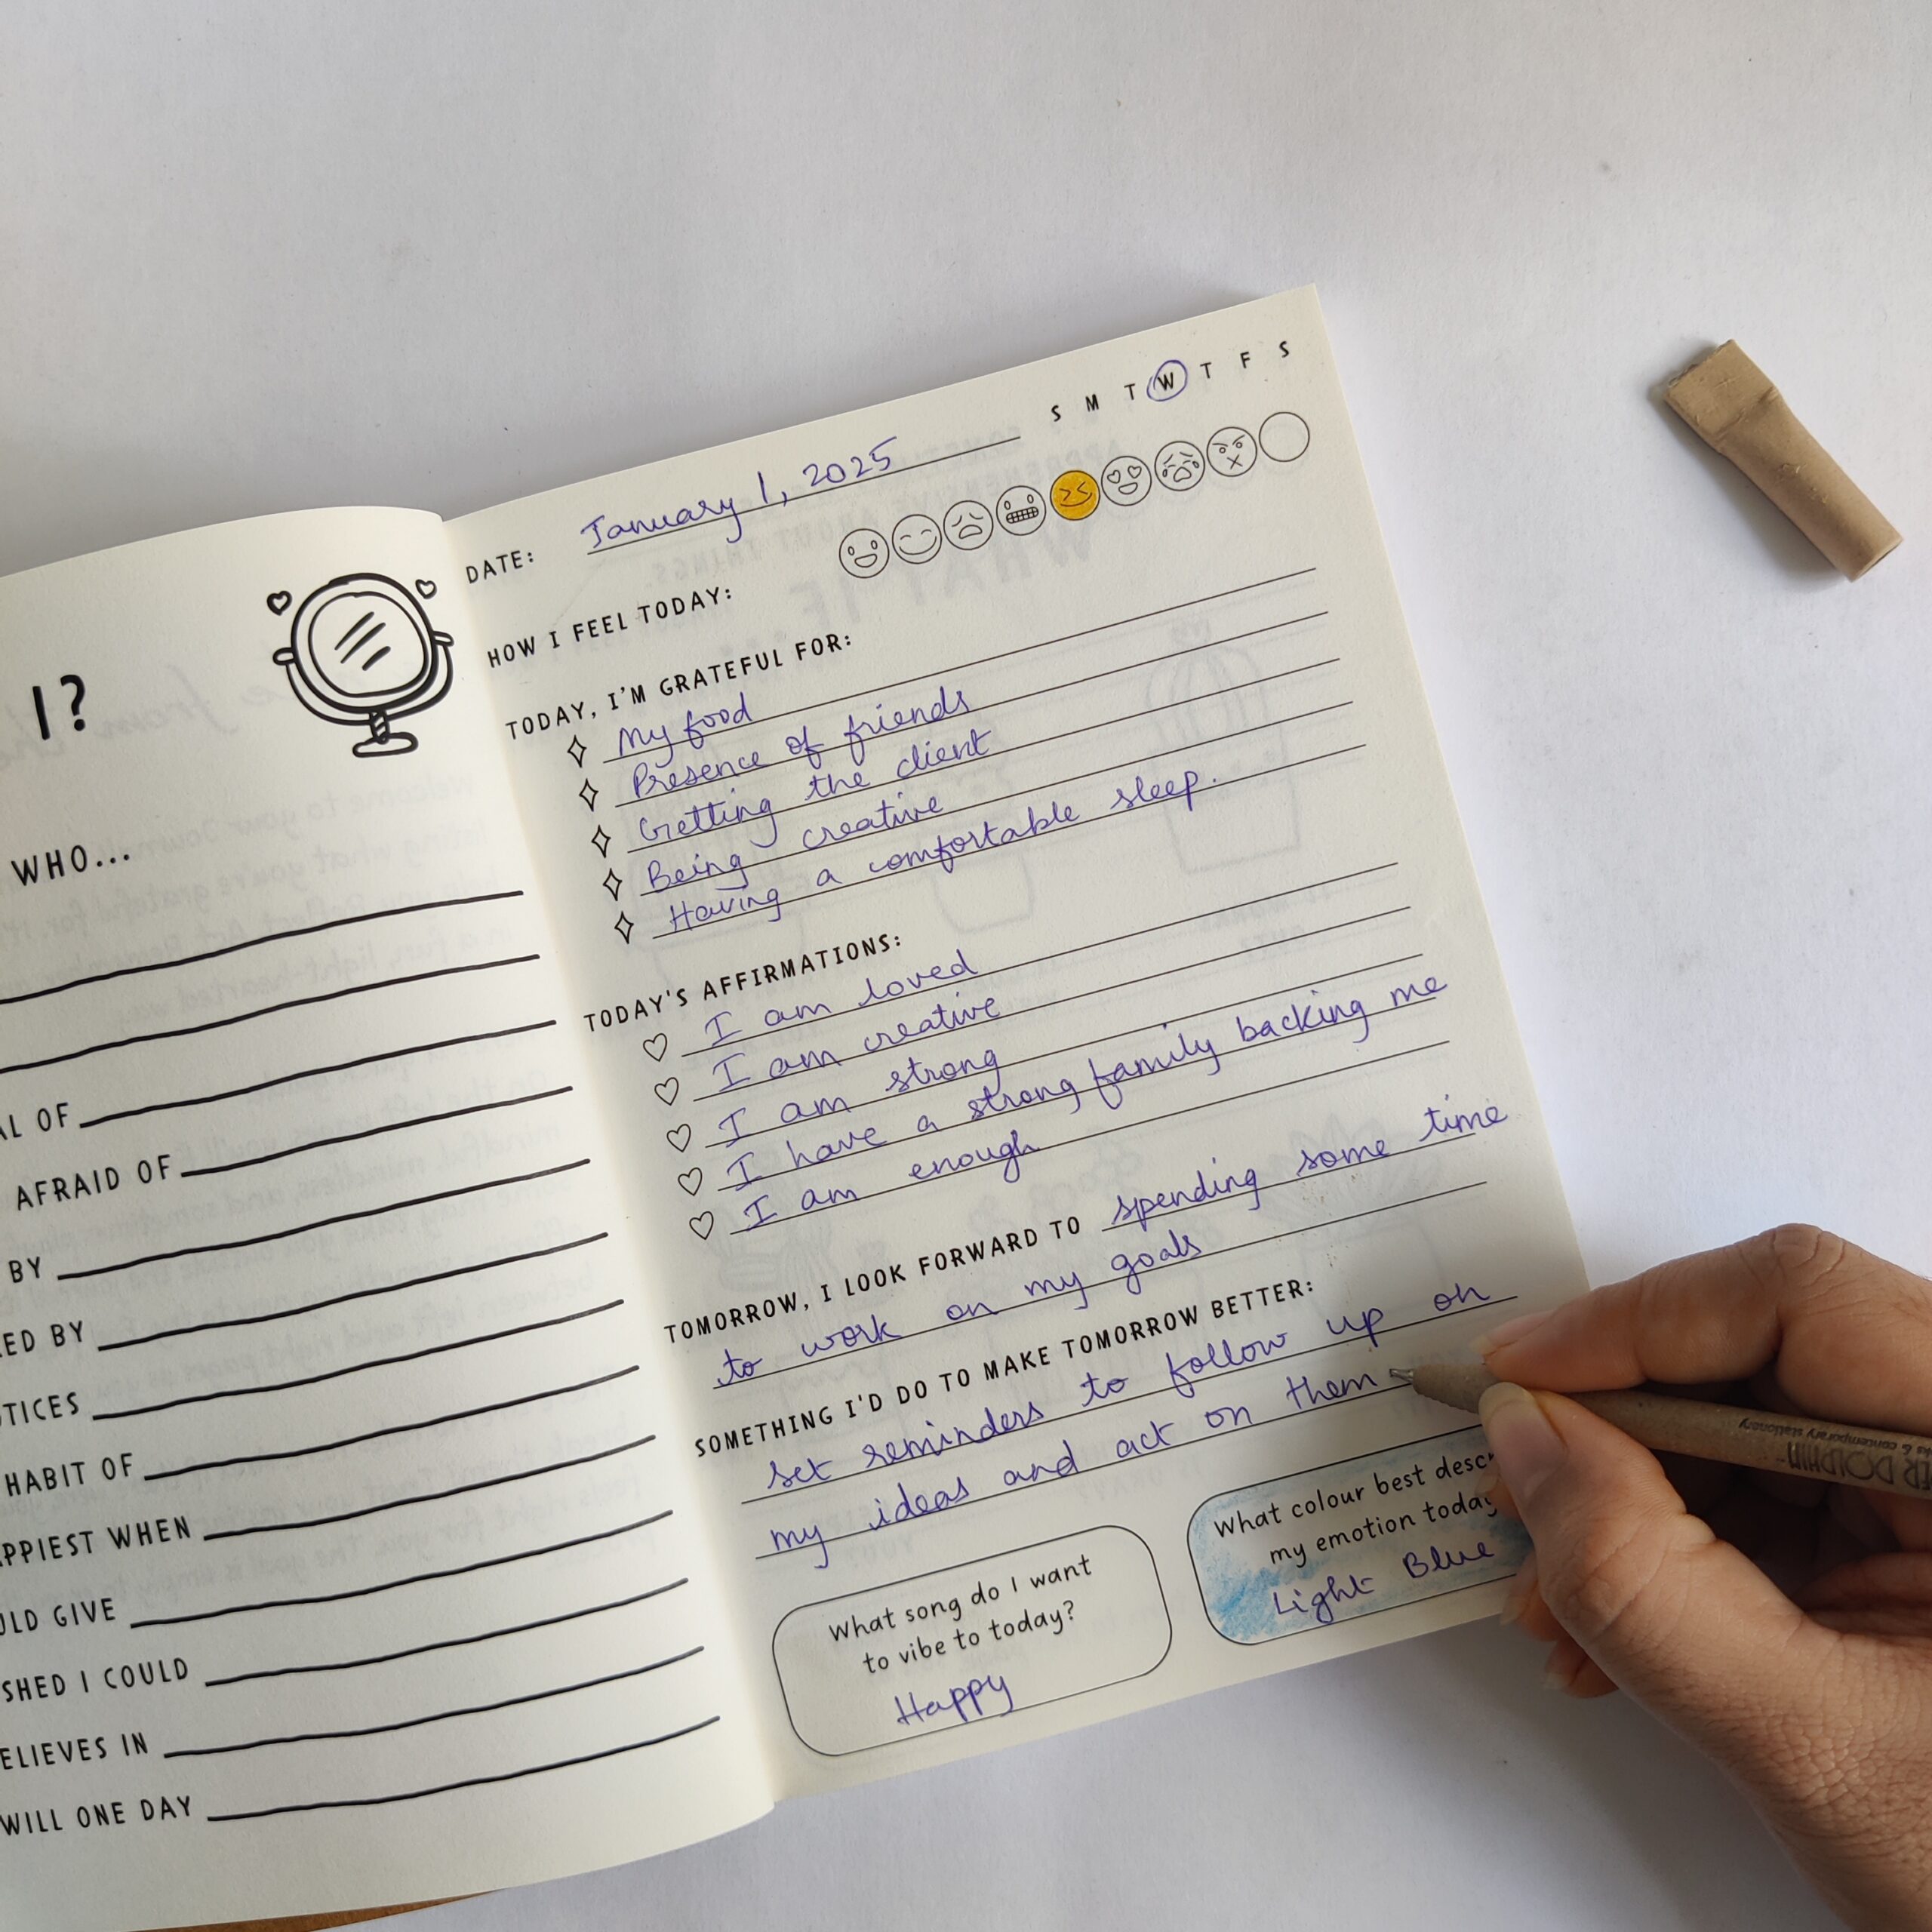 I?
WHO...
OF
AFRAID OF
BY
BY
HABIT OF
WHEN
GIVE
I COULD
IN
WILL ONE DAY
S M T W T F S
DATE: January 1, 2025
HOW I FEEL TODAY:
TODAY, I'M GRATEFUL FOR:
My food
Presence of friends
Getting the client
Being creative
Having a comfortable sleep.
TODAY'S AFFIRMATIONS:
I am loved
I am creative
I am strong
I have a strong family backing me
I am enough
TOMORROW, I LOOK FORWARD TO spending some time
to work on my goals
SOMETHING I'D DO TO MAKE TOMORROW BETTER:
set reminders to follow up on
my ideas and act on them
What song do I want
to vibe to today?
Happy
What colour best
my emotion
Light Blue
DOLPHIN
& contemporary stationery